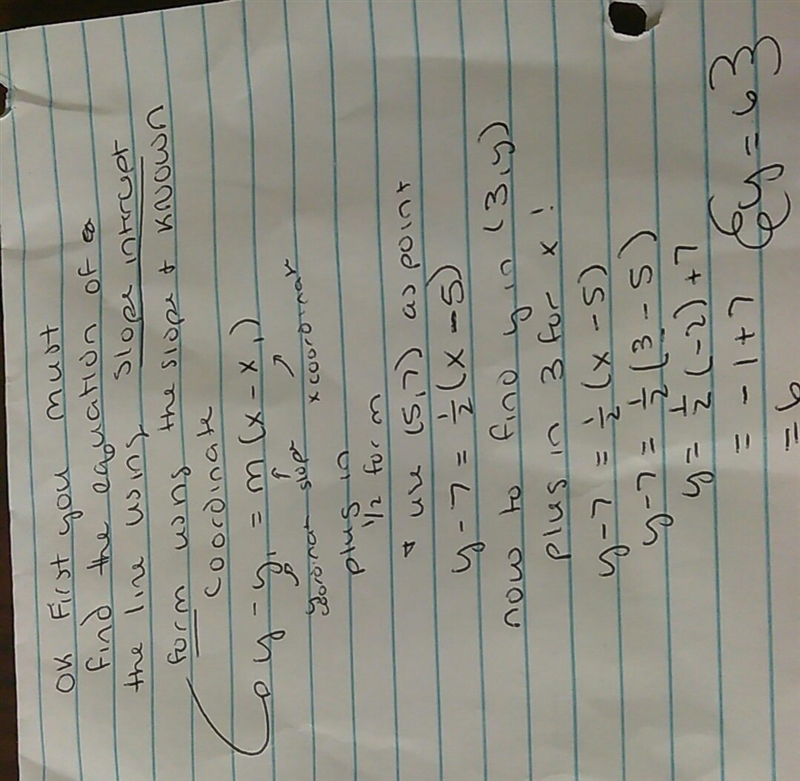 OK First you must
find the equation of a
the line using slope intercept
form using the slope & KNOWN
coordinate
y - y₁ = m(x - x₁)
y coordinat slope x coordinat
plug in
1/2 for m
* use (5,7) as point
y - 7 = 1/2 (x - 5)
now to find y in (3,y)
plug in 3 for x!
y - 7 = 1/2 (x - 5)
y - 7 = 1/2 (3 - 5)
y = 1/2 (-2) + 7
= -1 + 7 {y = 6}
= 6